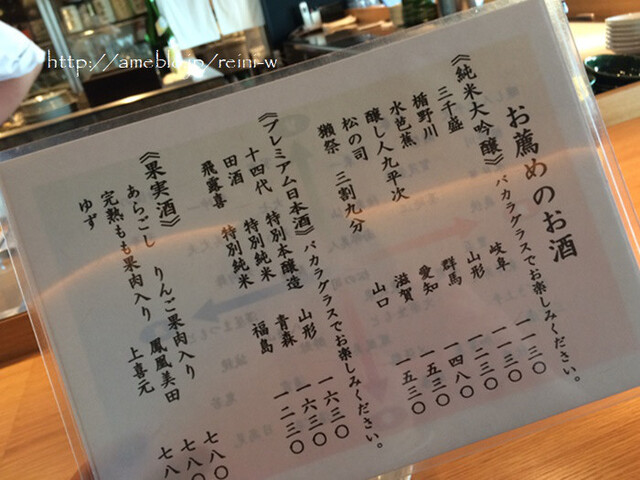 http://ameblo.jp/reini-w
お薦めのお酒
《純米大吟醸》バカラグラスでお楽しみください。
三千盛 岐阜 一一三〇
楯野川 山形 一二三〇
水芭蕉 群馬 一四八〇
醸し人九平次 愛知 一五三〇
松の司 滋賀 一五三〇
獺祭 三割九分 山口
《プレミアム日本酒》バカラグラスでお楽しみください。
十四代 特別本醸造 山形 一六三〇
田酒 特別純米 青森 一六三〇
飛露喜 特別純米 福島 一二三〇
《果実酒》
あらごし りんご果肉入り 鳳凰美田 七八〇
完熟もも果肉入り 上喜元 七八〇
ゆず 七八〇